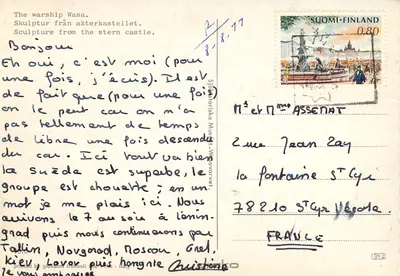 The warship Wasa.
Skulptur från akterkastellet.
Sculpture from the stern castle.
8-8-77
SUOMI-FINLAND
0,80
Bonjour
Eh oui, c'est moi (pour
une fois, j'écris). Il est
de fait que (pour une fois)
on le peut car on n'a
pas tellement de temps
de libre une fois descendu
du car. Ici tout va bien
la Suède est superbe, le
groupe est chouette; en un
mot je me plais ici. Nous
arrivons le 7 au soir à Lenin-
grad puis nous continuerons par
Tallin, Novgorod, Moscou, Orel,
Kiev, Lvov puis Hongrie
Je vous embrasse
Christine
Mr et Mme ASSEMAT
2 rue Jean Zay
la fontaine St Cyr
78210 St Cyr l'Ecole
FRANCE